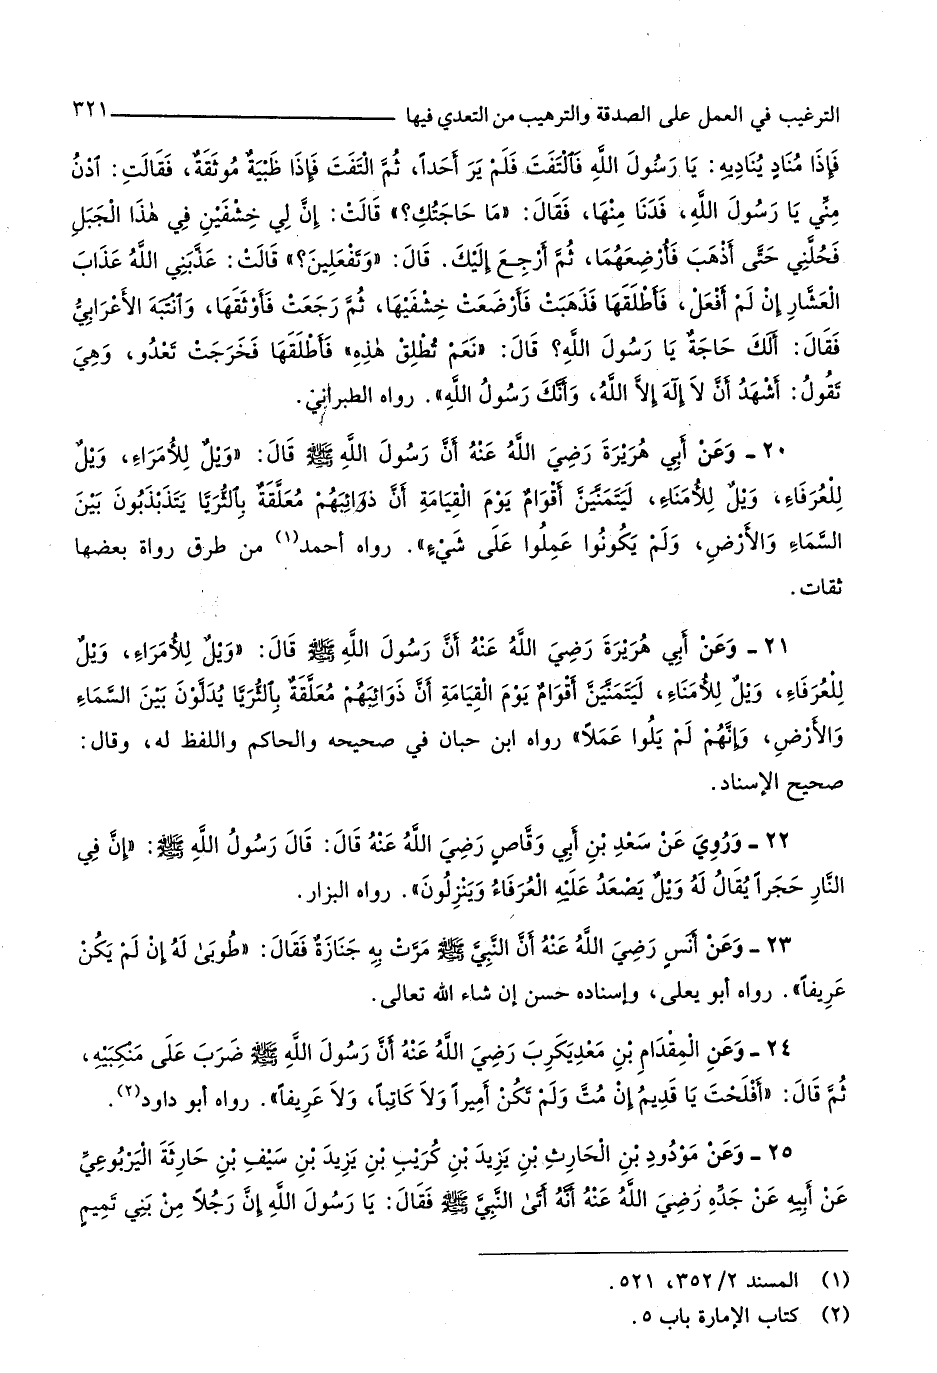 الترغيب في العمل على الصدقة والترهيب من التعدي فيها ٣٢١
فَإِذَا مُنَادٍ يُنَادِيهِ: يَا رَسُولَ اللَّهِ فَٱلْتَفَتَ فَلَمْ يَرَ أَحَداً، ثُمَّ الْتَفَتَ فَإِذَا ظَبْيَةٌ مُوثَقَةٌ، فَقَالَتِ: ٱدْنُ
مِنِّي يَا رَسُولَ اللَّهِ، فَدَنَا مِنْهَا، فَقَالَ: «مَا حَاجَتُكِ؟» قَالَتْ: إِنَّ لِي خِشْفَيْنِ فِي هٰذَا الْجَبَلِ
فَحُلَّنِي حَتَّى أَذْهَبَ فَأُرْضِعَهُمَا، ثُمَّ أَرْجِعَ إِلَيْكَ. قَالَ: «وَتَفْعَلِينَ؟» قَالَتْ: عَذَّبَنِي اللَّهُ عَذَابَ
الْعَشَّارِ إِنْ لَمْ أَفْعَلْ، فَأَطْلَقَهَا فَذَهَبَتْ فَأَرْضَعَتْ خِشْفَيْهَا، ثُمَّ رَجَعَتْ فَأَوْثَقَهَا، وَٱنْتَبَهَ الأَعْرَابِيُّ
فَقَالَ: أَلَكَ حَاجَةٌ يَا رَسُولَ اللَّهِ؟ قَالَ: «نَعَمْ تُطْلِقْ هٰذِهِ» فَأَطْلَقَهَا فَخَرَجَتْ تَعْدُو، وَهِيَ
تَقُولُ: أَشْهَدُ أَنَّ لاَ إِلٰهَ إِلاَّ اللَّهُ، وَأَنَّكَ رَسُولُ اللَّهِ». رواه الطبراني.
٢٠ - وَعَنْ أَبِي هُرَيْرَةَ رَضِيَ اللَّهُ عَنْهُ أَنَّ رَسُولَ اللَّهِ ﷺ قَالَ: «وَيْلٌ لِلأُمَرَاءِ، وَيْلٌ
لِلْعُرَفَاءِ، وَيْلٌ لِلأُمَنَاءِ، لَيَتَمَنَّيَنَّ أَقْوَامٌ يَوْمَ الْقِيَامَةِ أَنَّ ذَوَائِبَهُمْ مُعَلَّقَةٌ بِٱلثُّرَيَّا يَتَذَبْذَبُونَ بَيْنَ
السَّمَاءِ وَالأَرْضِ، وَلَمْ يَكُونُوا عَمِلُوا عَلَى شَيْءٍ». رواه أحمد(١) من طرق رواة بعضها
ثقات.
٢١ - وَعَنْ أَبِي هُرَيْرَةَ رَضِيَ اللَّهُ عَنْهُ أَنَّ رَسُولَ اللَّهِ ﷺ قَالَ: «وَيْلٌ لِلأُمَرَاءِ، وَيْلٌ
لِلْعُرَفَاءِ، وَيْلٌ لِلأُمَنَاءِ، لَيَتَمَنَّيَنَّ أَقْوَامٌ يَوْمَ الْقِيَامَةِ أَنَّ ذَوَائِبَهُمْ مُعَلَّقَةٌ بِٱلثُّرَيَّا يُدَلَّوْنَ بَيْنَ السَّمَاءِ
وَالأَرْضِ، وَإِنَّهُمْ لَمْ يَلُوا عَمَلاً» رواه ابن حبان في صحيحه والحاكم واللفظ له، وقال:
صحيح الإسناد.
٢٢ - وَرُوِيَ عَنْ سَعْدِ بْنِ أَبِي وَقَّاصٍ رَضِيَ اللَّهُ عَنْهُ قَالَ: قَالَ رَسُولُ اللَّهِ ﷺ: «إِنَّ فِي
النَّارِ حَجَراً يُقَالُ لَهُ وَيْلٌ يَصْعَدُ عَلَيْهِ الْعُرَفَاءُ وَيَنْزِلُونَ». رواه البزار.
٢٣ - وَعَنْ أَنَسٍ رَضِيَ اللَّهُ عَنْهُ أَنَّ النَّبِيَّ ﷺ مَرَّتْ بِهِ جَنَازَةٌ فَقَالَ: «طُوبَىٰ لَهُ إِنْ لَمْ يَكُنْ
عَرِيفاً». رواه أبو يعلى، وإسناده حسن إن شاء الله تعالى.
٢٤ - وَعَنِ الْمِقْدَامِ بْنِ مَعْدِيَكَرِبَ رَضِيَ اللَّهُ عَنْهُ أَنَّ رَسُولَ اللَّهِ ﷺ ضَرَبَ عَلَى مَنْكِبَيْهِ،
ثُمَّ قَالَ: «أَفْلَحْتَ يَا قَدِيمُ إِنْ مُتَّ وَلَمْ تَكُنْ أَمِيراً وَلاَ كَاتِباً، وَلاَ عَرِيفاً». رواه أبو داود(٢).
٢٥ - وَعَنْ مَوْدُودِ بْنِ الْحَارِثِ بْنِ يَزِيدَ بْنِ كُرَيْبِ بْنِ يَزِيدَ بْنِ سَيْفِ بْنِ حَارِثَةَ الْيَرْبُوعِيِّ
عَنْ أَبِيهِ عَنْ جَدِّهِ رَضِيَ اللَّهُ عَنْهُ أَنَّهُ أَتَىٰ النَّبِيَّ ﷺ فَقَالَ: يَا رَسُولَ اللَّهِ إِنَّ رَجُلاً مِنْ بَنِي تَمِيمٍ
(١) المسند ٢/٣٥٢، ٥٢١.
(٢) كتاب الإمارة باب ٥.